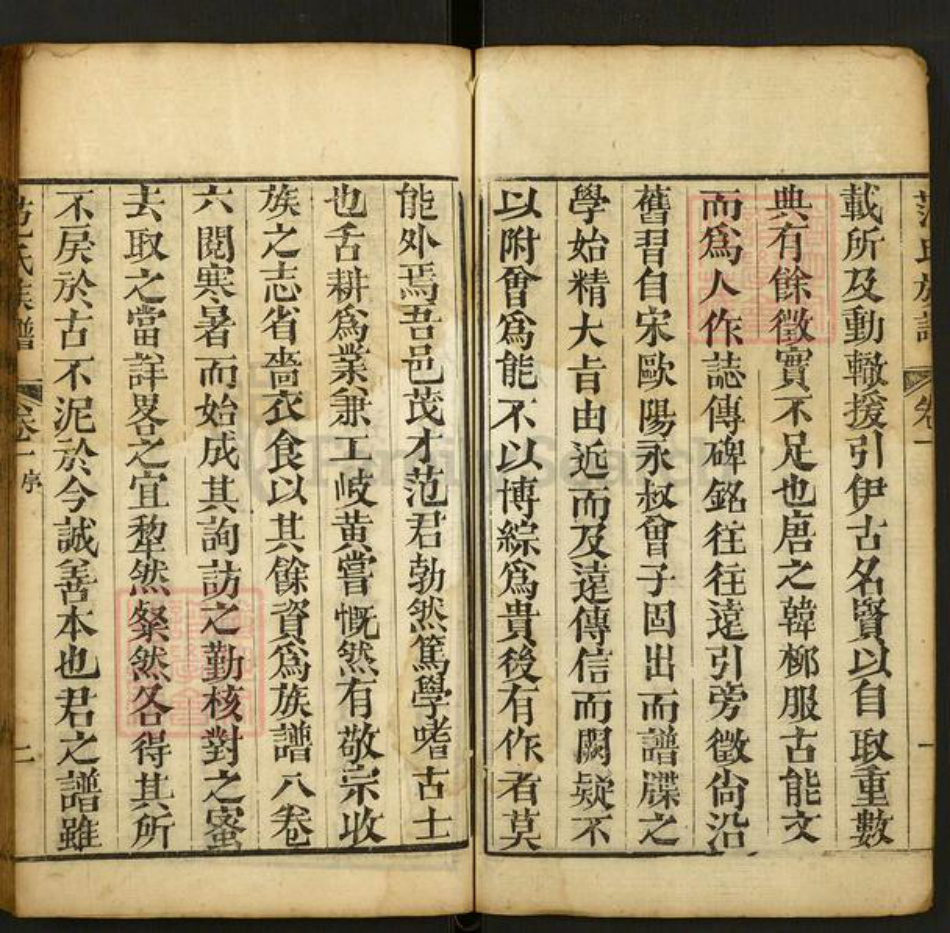 范氏族譜 卷一 一
載所及動轍援引伊古名賢以自取重數
典有餘徵實不足也唐之韓柳服古能文
而爲人作誌傳碑銘往往遠引旁徵尙沿
舊習自宋歐陽永叔曾子固出而譜牒之
學始精大旨由近而及遠傳信而闕疑不
以附會爲能不以博綜爲貴後有作者莫
能外焉吾邑茂才范君勃然篤學嗜古士
也舌耕爲業兼工岐黃嘗慨然有敬宗收
族之志省嗇衣食以其餘資爲族譜八卷
六閱寒暑而始成其詢訪之勤核對之蜜
去取之當詳畧之宜犂然粲然各得其所
不戾於古不泥於今誠善本也君之譜雖
范氏族譜 卷一 序 二
FamilySearch